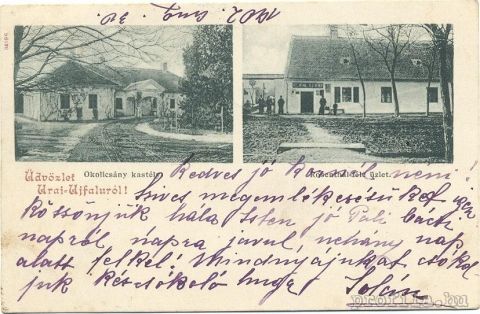 1902 aug 30.
Okolicsány kastély
üzlet.
Üdvözlet
Urai-Ujfaluról!
kedves jó néni!
szives megemlékezésüket
köszönjük hála Isten jó Pali bácsi
napról napra javul néhány nap
alatt felkel! Mindnyájukat csókol
juk kézcsókoló huga